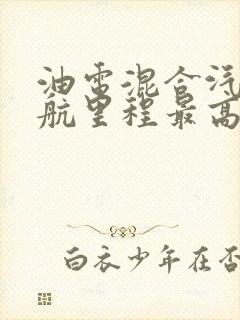 油电混合汽
航里程最高
白衣少年在否